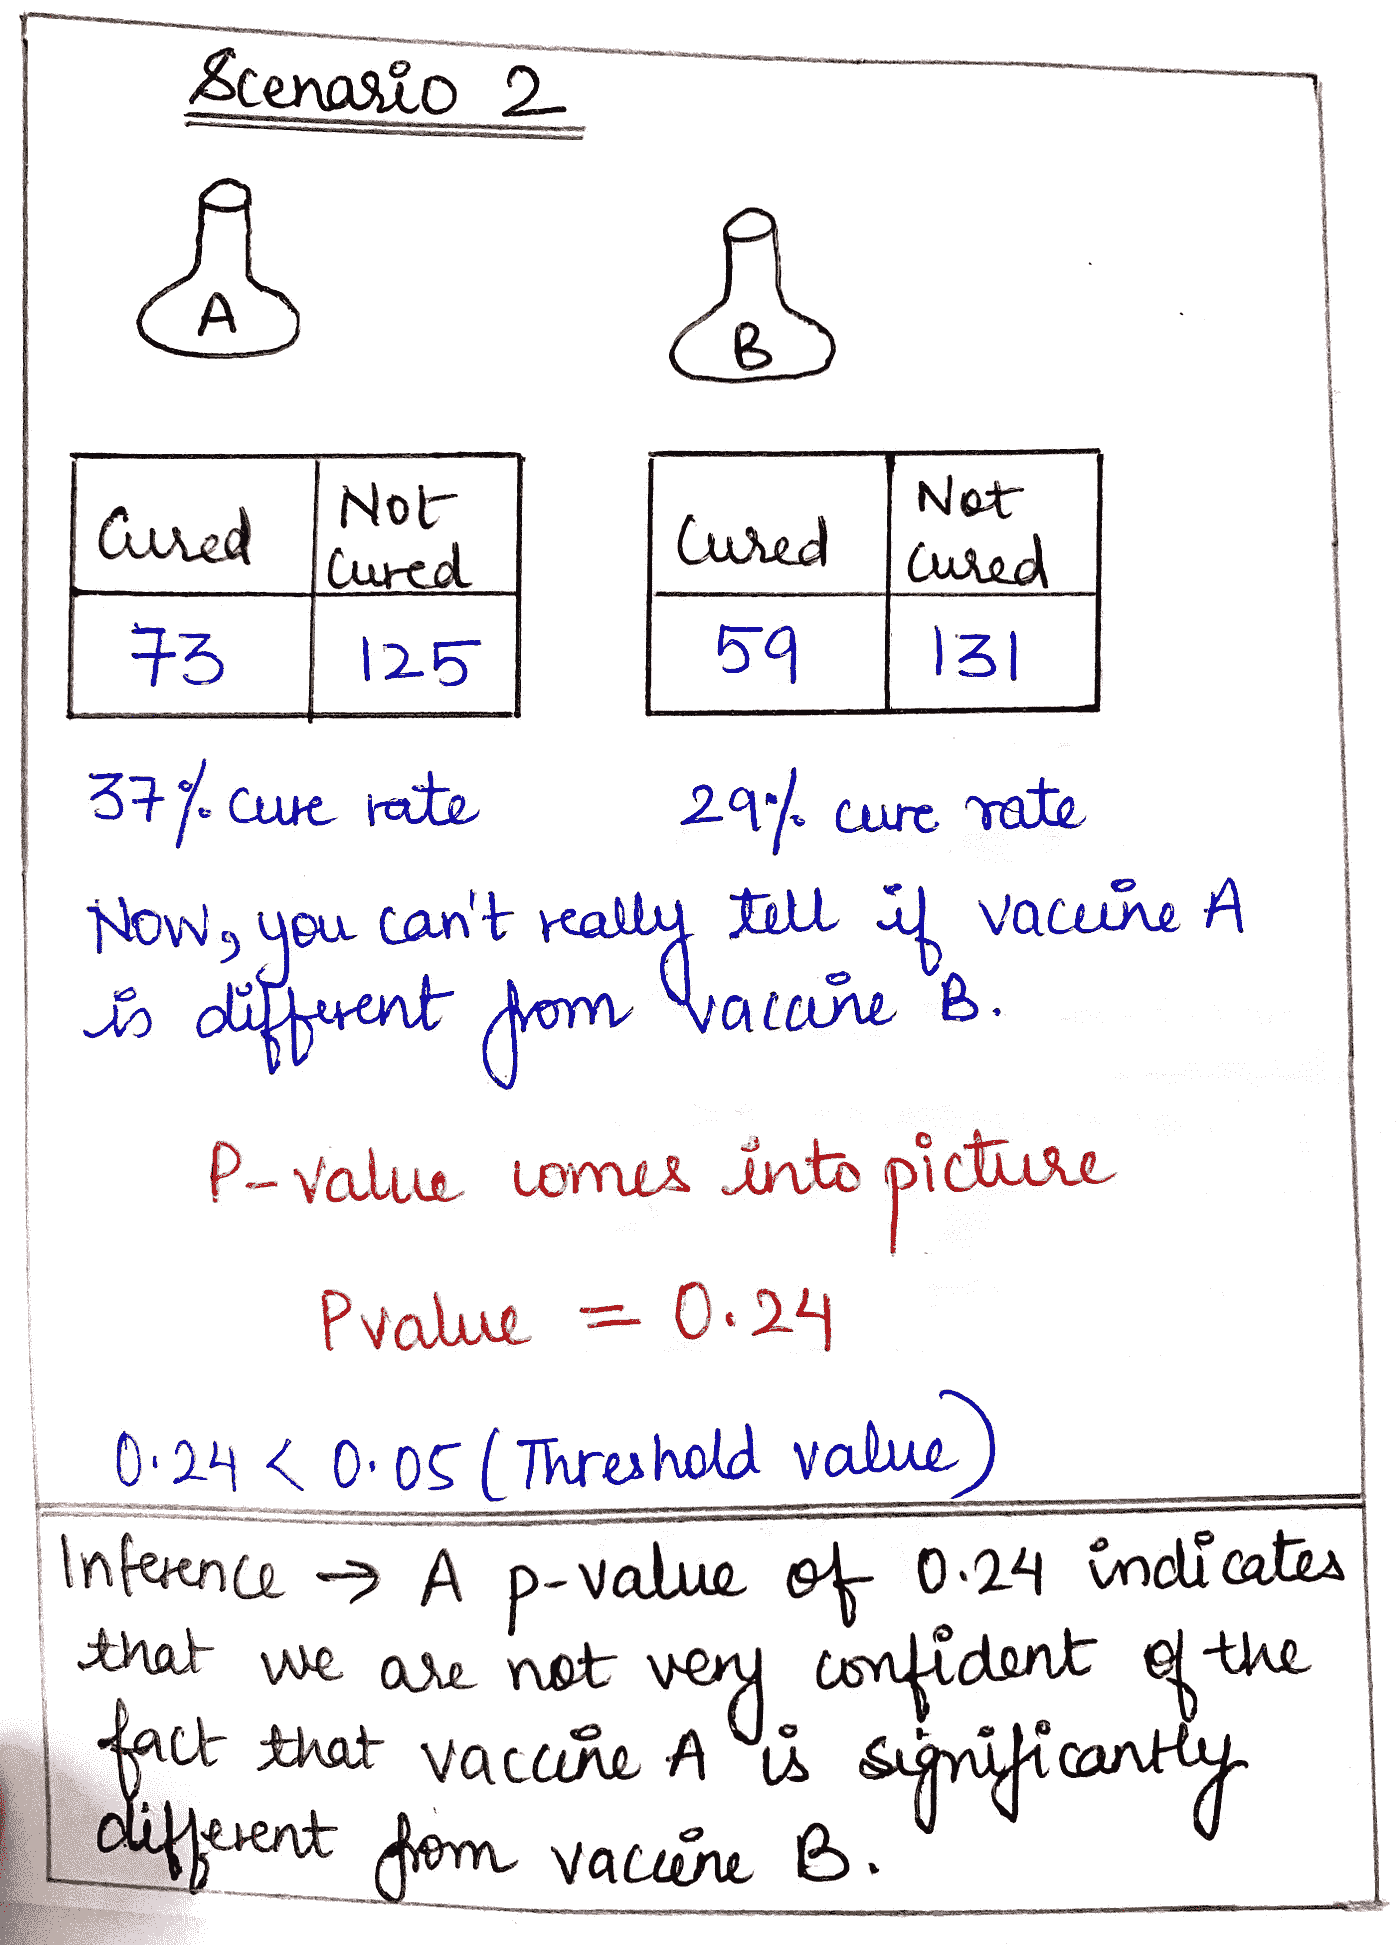 Scenario 2
A
B
Cured Not Cured
73 125
Cured Not Cured
59 131
37% cure rate
29% cure rate
Now, you can't really tell if vaccine A
is different from vaccine B.
P-value comes into picture
P value = 0.24
0.24 < 0.05 (Threshold value)
Inference → A p-value of 0.24 indicates
that we are not very confident of the
fact that vaccine A is significantly
different from vaccine B.